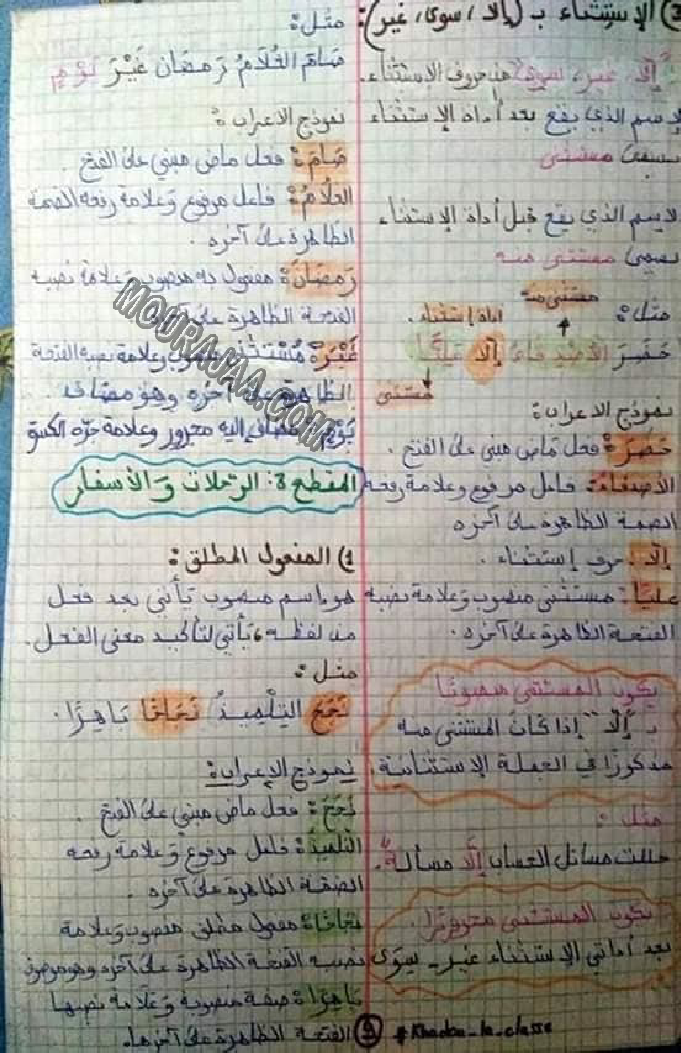 3) الإستثناء بـ (إلا، سوى، غير):
"إلّا، غير، سوى" من حروف الإستثناء.
الإسم الذي يقع بعد أداة الإستثناء
يسمى مستثنى
الاسم الذي يقع قبل أداة الإستثناء
يسمى مستثنى منه
مستثنى منه
مثل: أداة إستثناء.
حَضَرَ الأصْدِقاءُ إلّا عَلِيًّا
مستثنى
نموذج الاعراب:
حَضَرَ: فعل ماض مبني على الفتح.
الأصدقاءُ: فاعل مرفوع وعلامة رفعه
الضمة الظاهرة على آخره
إلّا: حرف إستثناء.
عليًا: مستثنى منصوب وعلامة نصبه
الفتحة الظاهرة على آخره.
يكون المستثنى منصوبًا
بـ "إلّا" إذا كانَ المستثنى منه
مذكورًا في الجملة الإستثنائية.
مثل:
حللت مسائل الحساب إلّا مسألةً.
يكون المستثنى مجرورًا
بعد أداتي الإستثناء غير - سوى
مثل:
صَامَ الغُلَامُ رَمضَان غَيْرَ يَوْمٍ
نموذج الاعراب:
صَامَ: فعل ماض مبني على الفتح.
الغلَامُ: فاعل مرفوع وَعلامة رفعه الضمة
الظّاهرة على آخره.
رَمضَانَ: مفعول به منصوب وعلامة نصبه
الفتحة الظاهرة على آخره
غَيْرَ: مُسْتَثْنَى منصوب وعلامة نصبه الفتحة
الظاهرة على آخره وهو مضاف.
يَوْمٍ: مضاف إليه مجرور وعلامة جرّه الكسرة
المقطع 8: الرّحلات وَالأسفار
1) المفعول المطلق:
هو إسم منصوب يَأتي بعد فعل
من لفظه، يَأتي لتأكيد معنى الفعل.
مثل:
نَجَحَ التِلْمِيذُ نَجَاحًا بَاهِرًا.
نموذج الإعراب:
نَجَحَ: فعل ماض مبني على الفتح.
التلميذُ: فاعل مرفوع وَعلامة رفعه
الضمّة الظاهرة على آخره.
نجاحًا: مفعول مطلق منصوب وعلامة
نصبه الفتحة الظاهرة على آخره وهو موصوف
بَاهِرًا: صفة منصوبة وَعَلامة نصبها
الفتحة الظاهرة على آخرها.
#Khadra_la_classe
MOURAJAA.COM